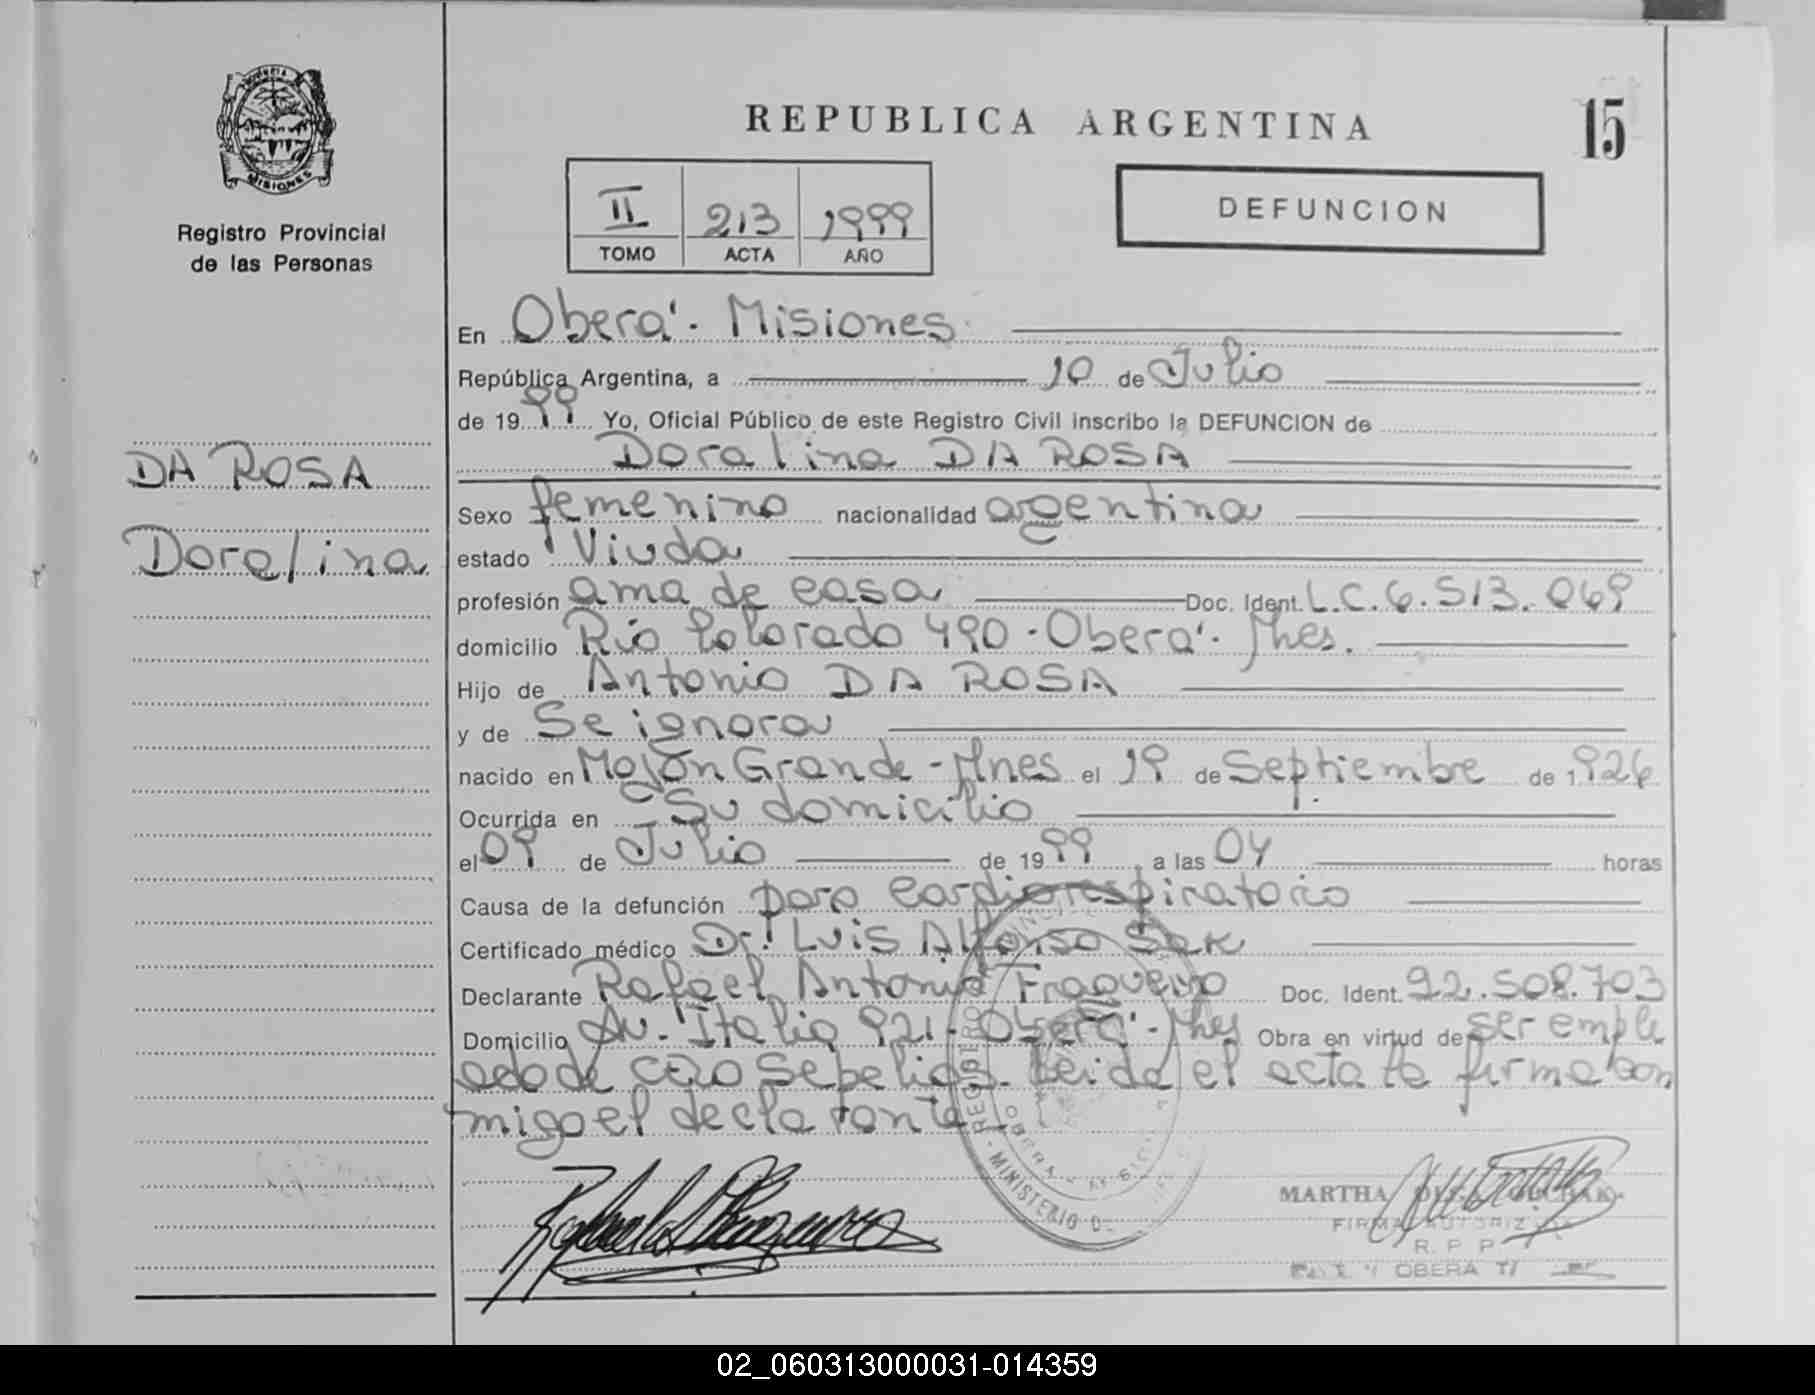 PROVINCIA
MISIONES
Registro Provincial
de las Personas
DA ROSA
Doralina
REPUBLICA ARGENTINA
15
II 213 1999
TOMO ACTA AÑO
DEFUNCION
En Oberá. Misiones
República Argentina, a 10 de Julio
de 1999 Yo, Oficial Público de este Registro Civil inscribo la DEFUNCION de
Doralina DA ROSA
Sexo femenino nacionalidad argentina
estado Viuda
profesión ama de casa Doc. Ident. L.C. 6.513.069
domicilio Río Colorado 490 - Oberá. Mnes.
Hijo de Antonio DA ROSA
y de Se ignora
nacido en Mojón Grande - Mnes el 19 de Septiembre de 1926
Ocurrida en Su domicilio
el 09 de Julio de 1999 a las 04 horas
Causa de la defunción paro cardiorespiratorio
Certificado médico Dr. Luis Alfonso
Declarante Rafael Antonio Fragueiro Doc. Ident. 92.508.703
Domicilio Av. Italia 921 - Oberá - Mnes Obra en virtud de ser emple
ado de Sepelios. Leída el acta la firma con
migo el declarante
REGISTRO
MINISTERIO D
MARTHA
FIRMA AUTORIZADA
R. P. P.
OBERA
02_060313000031-014359